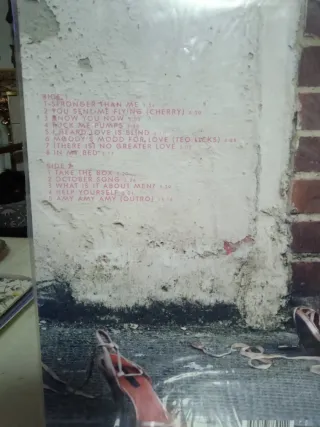 SIDE 1
1 STRONGER THAN ME
2 YOU SEND ME FLYING (CHERRY)
3 KNOW YOU NOW
4 FUCK ME PUMPS
5 I HEARD LOVE IS BLIND
6 MOODY'S MOOD FOR LOVE (TEO LICKS)
7 (THERE IS) NO GREATER LOVE
8 IN MY BED
SIDE 2
1 TAKE THE BOX
2 OCTOBER SONG
3 WHAT IS IT ABOUT MEN?
4 HELP YOURSELF
AMY AMY AMY (OUTRO)